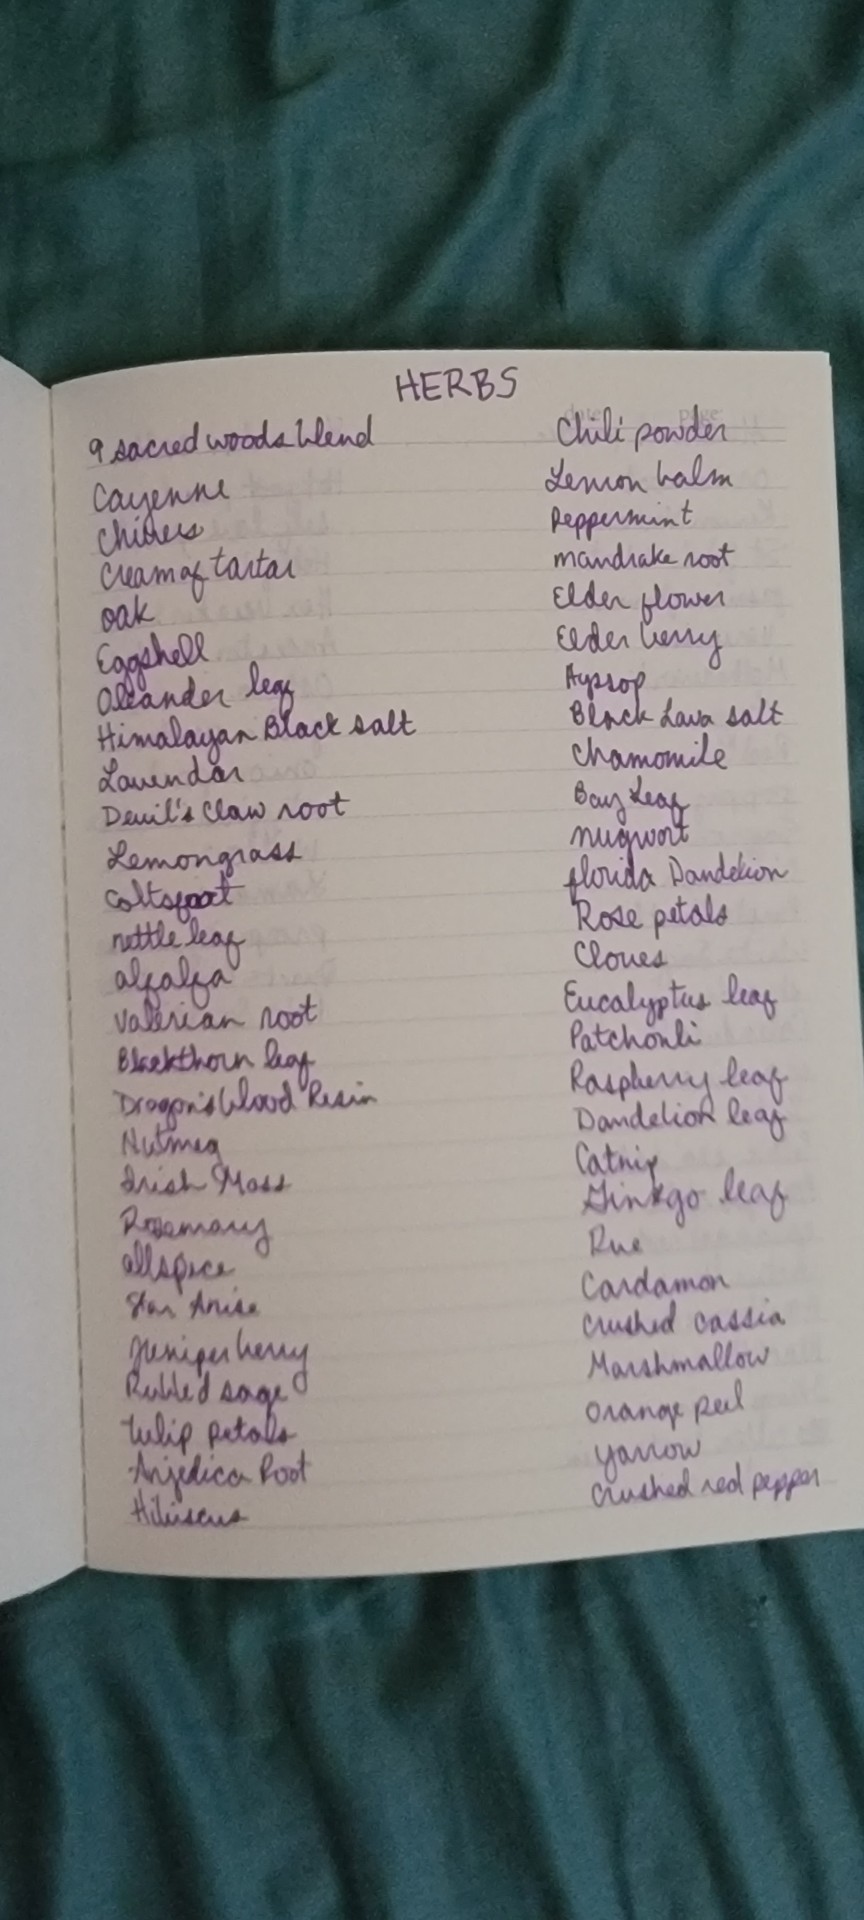 HERBS
9 sacred woods blend
Cayenne
Chives
Cream of tartar
oak
Eggshell
Oleander leaf
Himalayan Black salt
Lavendar
Devil's Claw root
Lemongrass
Coltsfoot
nettle leaf
alfalfa
Valerian root
Blackthorn leaf
Dragon's blood Resin
Nutmeg
Irish Moss
Rosemary
allspice
Star Anise
Juniper berry
Rubbed sage
tulip petals
Anjedica Root
Hibiscus
Chili powder
Lemon balm
Peppermint
mandrake root
Elder flower
Elder berry
Hyssop
Black Lava salt
Chamomile
Bay Leaf
mugwort
florida Dandelion
Rose petals
Cloves
Eucalyptus leaf
Patchouli
Raspberry leaf
Dandelion leaf
Catnip
Ginkgo leaf
Rue
Cardamon
Crushed cassia
Marshmallow
Orange peel
yarrow
Crushed red pepper